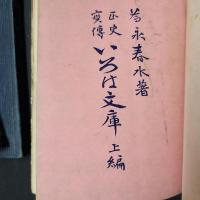 為永春水著
正史
実傳
いろは文庫 上編